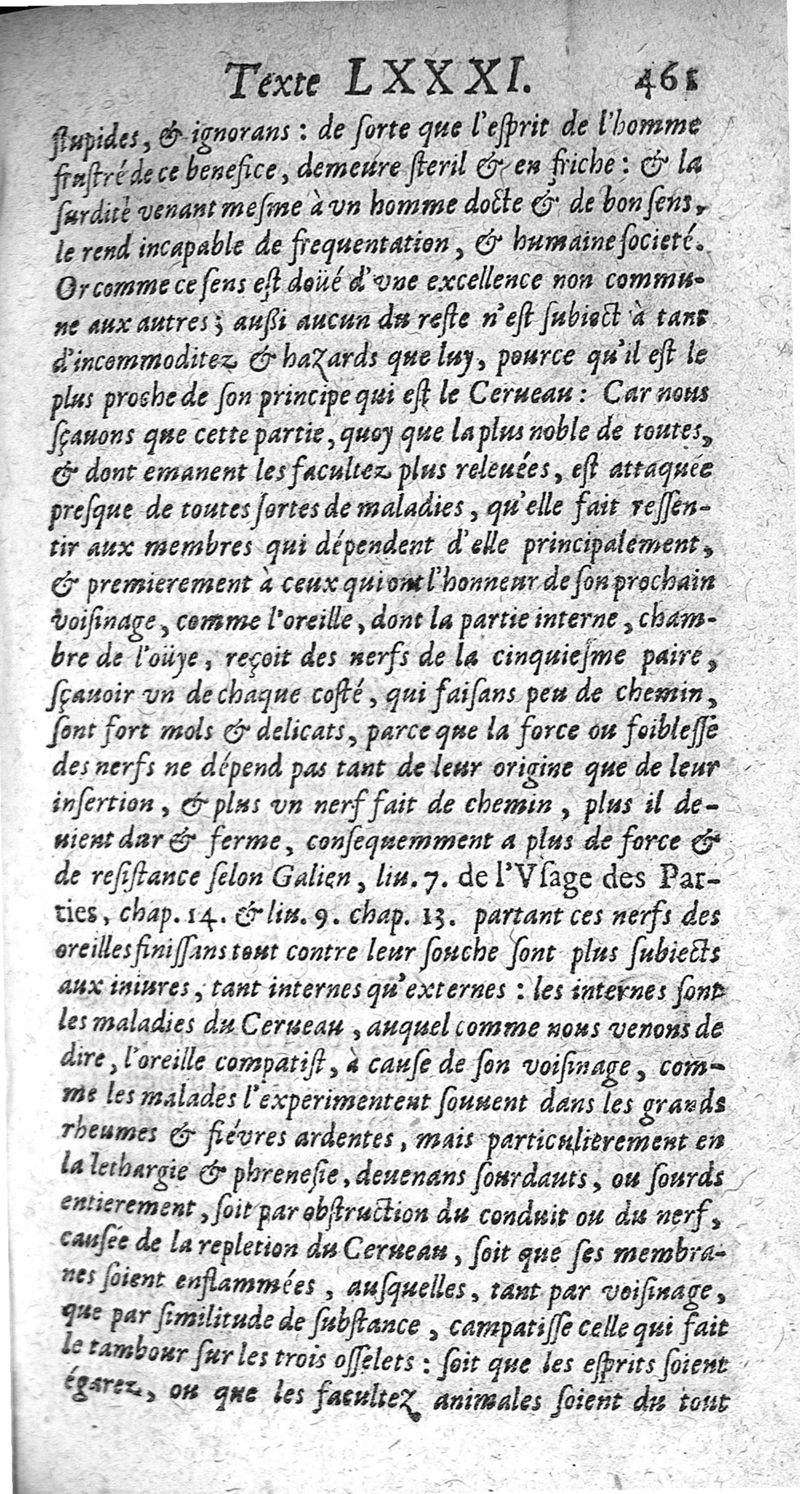 Texte LXXXI. 461
ſtupides, & ignorans : de ſorte que l'eſprit de l'homme
fruſtré de ce benefice, demeure ſteril & en friche : & la
ſurdité venant meſme à vn homme docte & de bon ſens,
le rend incapable de frequentation, & humaine ſocieté.
Or comme ce ſens eſt doüé d'vne excellence non commu-
ne aux autres ; außi aucun du reſte n'eſt ſubiect à tant
d'incommoditez & hazards que luy, pource qu'il eſt le
plus proche de ſon principe qui eſt le Cerueau : Car nous
ſçauons que cette partie, quoy que la plus noble de toutes,
& dont emanent les facultez plus releuées, eſt attaquée
preſque de toutes ſortes de maladies, qu'elle fait reſſen-
tir aux membres qui dépendent d'elle principalement,
& premierement à ceux qui ont l'honneur de ſon prochain
voiſinage, comme l'oreille, dont la partie interne, cham-
bre de l'oüye, reçoit des nerfs de la cinquieſme paire,
ſçauoir vn de chaque coſté, qui faiſans peu de chemin,
ſont fort mols & delicats, parce que la force ou foibleſſe
des nerfs ne dépend pas tant de leur origine que de leur
inſertion, & plus vn nerf fait de chemin, plus il de-
uient dur & ferme, conſequemment a plus de force &
de reſiſtance ſelon Galien, liu. 7. de l'Vſage des Par-
ties, chap. 14. & liu. 9. chap. 13. partant ces nerfs des
oreilles finiſſans tout contre leur ſouche ſont plus ſubiects
aux iniures, tant internes qu'externes : les internes ſont
les maladies du Cerueau, auquel comme nous venons de
dire, l'oreille compatiſt, à cauſe de ſon voiſinage, com-
me les malades l'experimentent ſouuent dans les grands
rheumes & fiévres ardentes, mais particulierement en
la lethargie & phreneſie, deuenans ſourdauts, ou ſourds
entierement, ſoit par obſtruction du conduit ou du nerf,
cauſée de la repletion du Cerueau, ſoit que ſes membra-
nes ſoient enflammées, auſquelles, tant par voiſinage,
que par ſimilitude de ſubſtance, campatiſſe celle qui fait
le tambour ſur les trois oſſelets : ſoit que les eſprits ſoient
égarez, ou que les facultez animales ſoient du tout